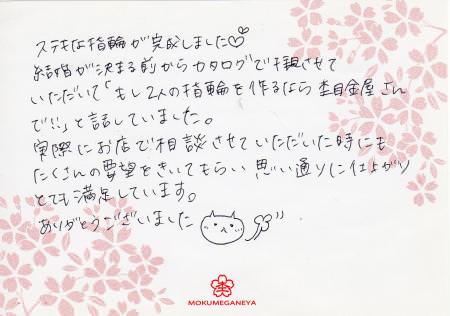 ステキな指輪が完成しました♡♡
結婚が決まる前からカタログで拝見させて
いただいて「もし2人の指輪を作るなら杢目金屋さん
で!!」と話していました。
実際にお店で相談させていただいた時にも
たくさんの要望をきいてもらい思い通りに仕上がり
とても満足しています。
ありがとうございました
杢
MOKUMEGANEYA